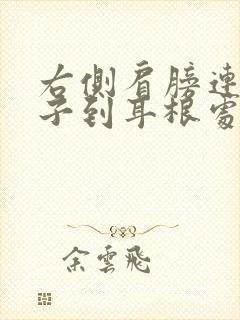 右側肩膀連
子到耳根處
余雲飛